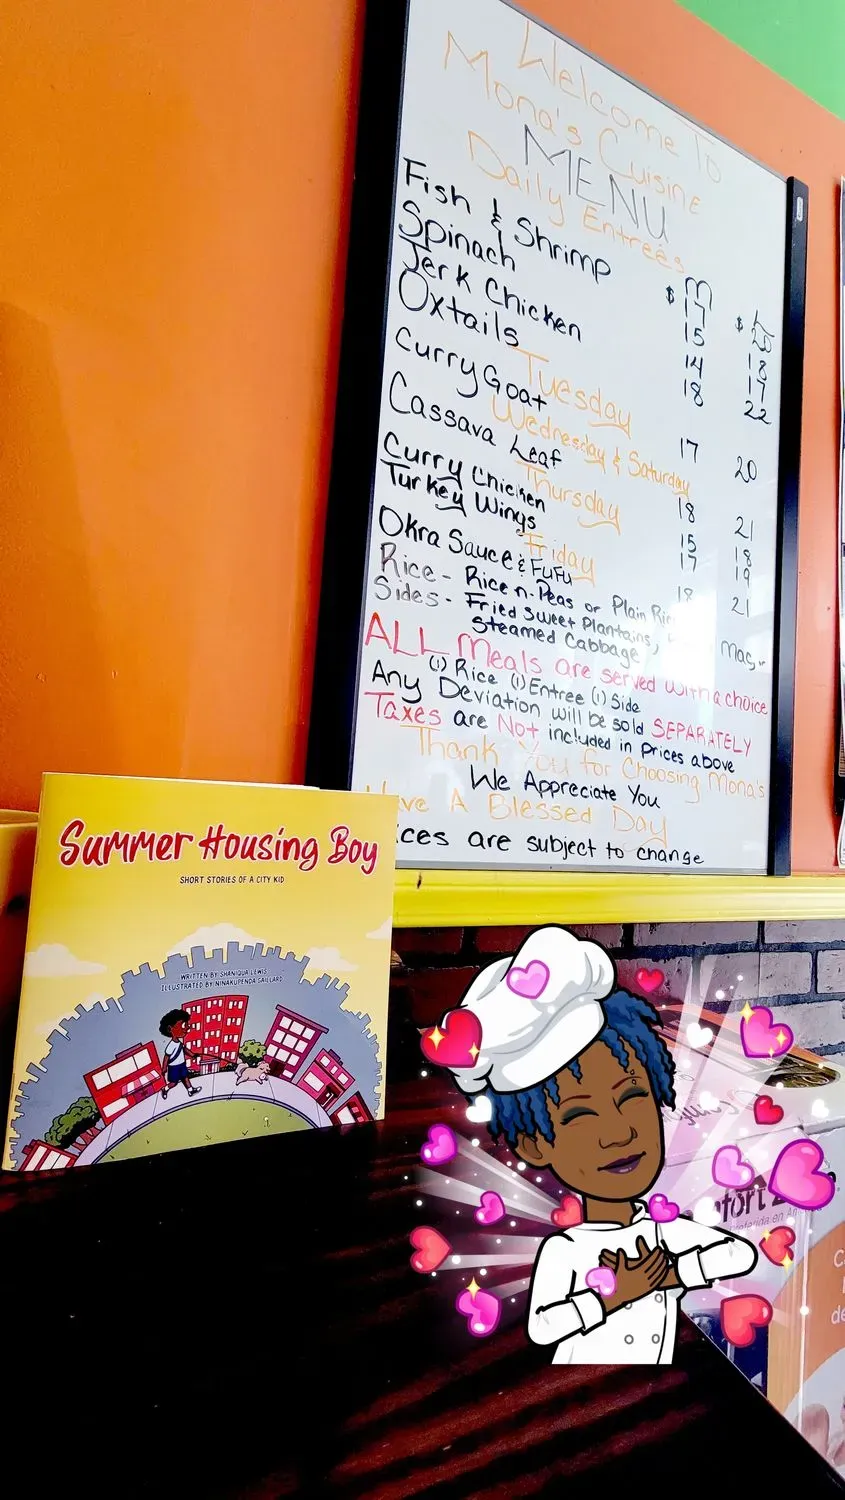 Welcome To
Mona's Cuisine
MENU
Daily Entrees
M L
Fish & Shrimp $ 17 $ 20
Spinach 15 18
Jerk Chicken 14 17
Oxtails 18 22
Tuesday
Curry Goat 17 20
Wednesday & Saturday
Cassava Leaf 18 21
Thursday
Curry Chicken 15 18
Turkey Wings 17 19
Friday
Okra Sauce & FuFu 18 21
Rice - Rice n. Peas or Plain Rice
Sides - Fried Sweet Plantains, Mac, or
Steamed Cabbage
ALL Meals are served with a choice
(1) Rice (1) Entree (1) Side
Any Deviation will be sold SEPARATELY
Taxes are Not included in prices above
Thank You for Choosing Mona's
We Appreciate You
Have A Blessed Day
ices are subject to change
Summer Housing Boy
SHORT STORIES OF A CITY KID
WRITTEN BY SHANIQUA LEWIS
ILLUSTRATED BY NINAKUPENDA GAILLARD